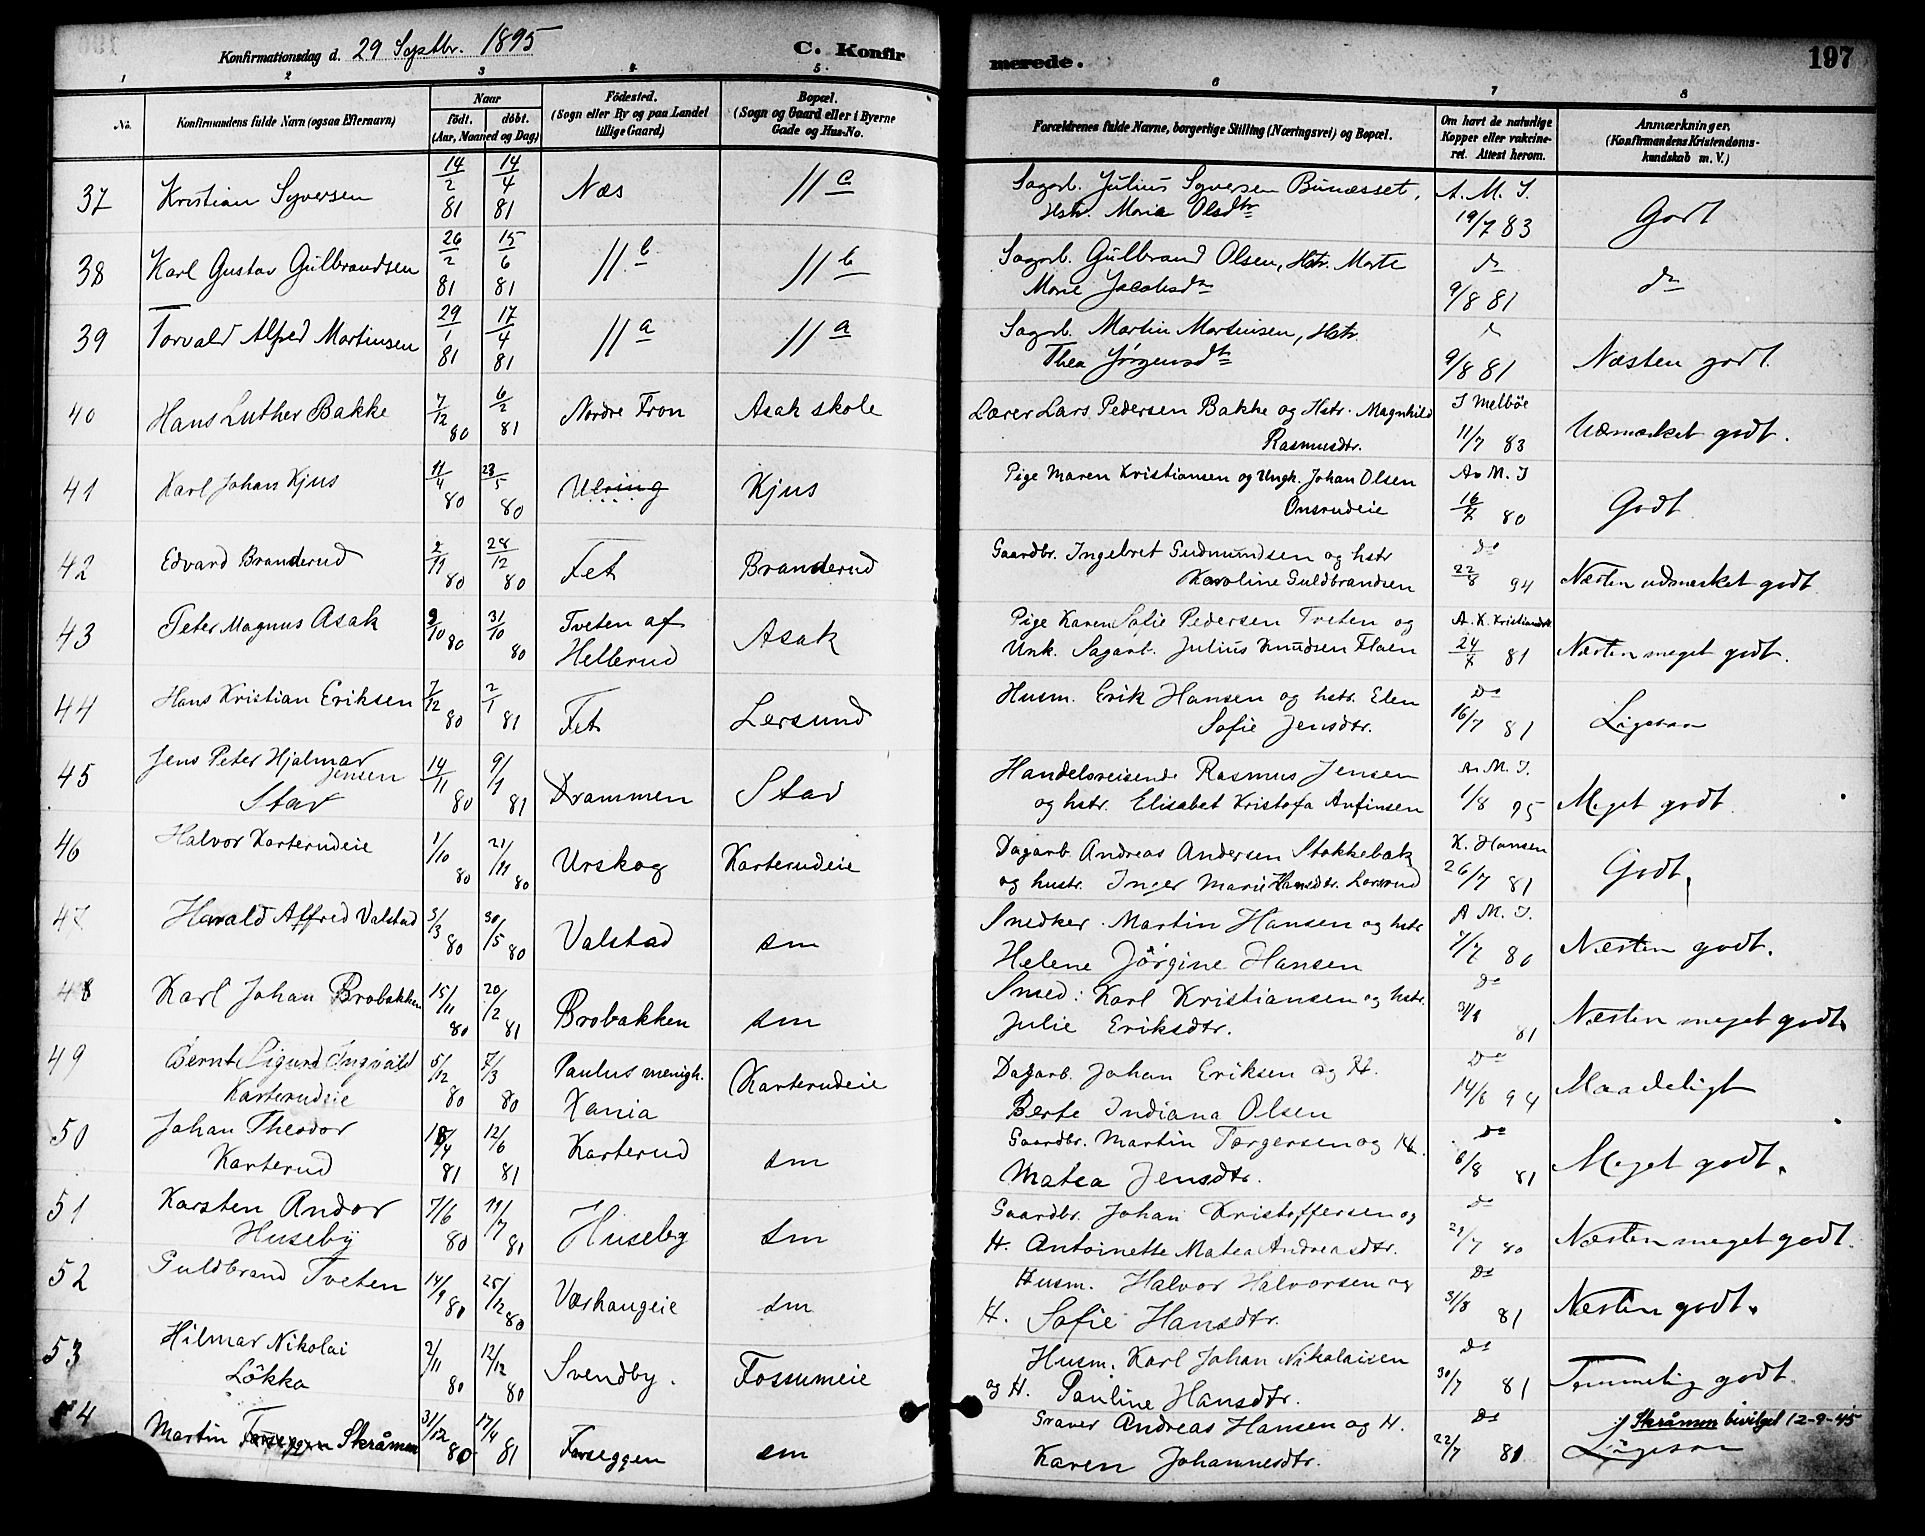 Konfirmationsdag d. 29 Septbr. 1895
C. Konfir
merede.
197
1 2 3 4 5 6 7 8
No. Konfirmandens fulde Navn (ogsaa Efternavn) Naar født. døbt. (Aar, Maaned og Dag) Fødested. (Sogn eller By og paa Landet tillige Gaard) Bopæl. (Sogn og Gaard eller i Byerne Gade og Hus-No. Forældrenes fulde Navne, borgerlige Stilling (Næringsvei) og Bopæl. Om havt de naturlige Kopper eller vakcineret. Attest herom. Anmærkninger. (Konfirmandens Kristendomskundskab m. V.)
37 Kristian Syversen 14/2 81 14/4 81 Næs // c Sagarb. Julius Syversen Bunæsset, A. M. I.
Hstr. Marie Olsdtr 19/7 83 Godt
38 Karl Gustav Gulbrandsen 26/2 81 15/6 81 // b // b Sagarb. Gulbrand Olsen, Hstr. Marte do
Marie Jacobsdtr 9/8 81 do
39 Torvald Alfred Martinsen 29/1 81 17/4 81 // a // a Sagarb. Martin Martinsen, Hstr.
Thea Jørgensdtr 9/8 81 Næsten godt.
40 Hans Luther Bakke 7/12 80 6/2 81 Nordre Fron Asak skole Lærer Lars Pedersen Bakke og Hstr. Magnhild I Melbøe
Rasmusdtr. 11/7 83 Udmærket godt.
41 Karl Johan Kjus 11/4 80 23/5 80 Ulring Kjus Pige Maren Kristiansen og Ungk. Johan Olsen A. M. I
Onsrudeie 16/7 80 Godt
42 Edvard Branderud 2/11 80 28/12 80 Fet Branderud Gaardbr. Ingebret Gudmundsen og hstr do
Karoline Guldbrandsen 22/8 94 Næsten udmærket godt
43 Peter Magnus Asak 9/10 80 31/10 80 Tveten af Hellerud Asak Pige Karen Sofie Pedersen Tveten og A. K. Kristiansen
Unk. Sagarb. Julius Knudsen Flaen 24/7 81 Næsten meget godt.
44 Hans Kristian Eriksen 7/12 80 2/1 81 Fet Lersund Husm. Erik Hansen og hstr. Elen do
Sofie Jensdtr. 16/7 81 Ligesaa
45 Jens Peter Hjalmar Jensen Stav 14/11 80 9/1 81 Drammen Stav Handelsreisende Rasmus Jensen A. M. I.
og hstr. Elisabet Kristofa Anfinsen 1/8 95 Meget godt.
46 Halvor Karterudeie 1/10 80 21/11 80 Urskog Karterudeie Dagarb. Andreas Andersen Stokkebæk K. Hansen
og hustr. Inger Marie Hansdtr. 26/7 81 Godt.
47 Harald Alfred Valstad 3/3 80 30/5 80 Valstad sm Snedker Martin Hansen og hstr A M. I.
Helene Jörgine Hansen 7/7 80 Næsten godt.
48 Karl Johan Brobakken 15/11 80 20/2 81 Brobakken sm Smed: Karl Kristiansen og hstr. do
Julie Eriksdtr. 81 Næsten meget godt.
49 Bernt Sigurd Ingvald Karterudeie 5/12 80 7/3 80 Paulus menigh. Kania Karterudeie Dagarb. Johan Eriksen og H. do
Berte Indiana Olsen 14/6 94 Maadeligt
50 Johan Theodor Karterud 18/4 81 12/6 81 Karterud sm Gaardbr. Martin Torgersen og H. do
Matea Jensdtr. 6/8 81 Meget godt.
51 Karsten Andor Huseby 7/6 80 11/7 80 Huseby sm Gaardbr. Johan Kristoffersen og do
H. Antoinette Matea Andreasdtr. 21/7 80 Næsten meget godt.
52 Guldbrand Tveten 14/9 80 25/12 80 Vashaugeie sm Husm. Halvor Halvorsen og do
H. Sofie Hansdtr. 31/8 81 Næsten godt.
53 Hilmar Nikolai Lökka 2/11 80 12/12 80 Svendby. Fossumeie Husm. Karl Johan Nikolaisen do
og H. Pauline Hansdtr. 30/7 81 Temmelig godt.
54 Martin Farseggen Skråmen 31/12 80 17/4 81 Farseggen sm Graver Andreas Hansen og H. do Skråmen bevilget 12-9-45
Karen Johannesdtr. 22/7 81 Ligesaa